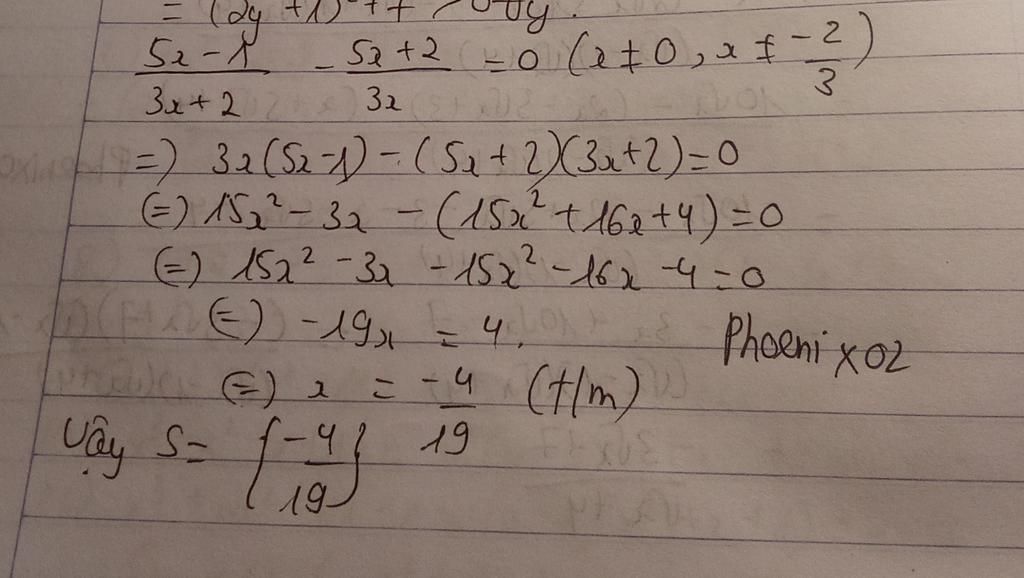 = (2y + 1)² + 7 > 0 ∀y.
(5x - 1)/(3x + 2) - (5x + 2)/(3x) = 0 (x ≠ 0, x ≠ -2/3)
=) 3x(5x - 1) - (5x + 2)(3x + 2) = 0
(=) 15x² - 3x - (15x² + 16x + 4) = 0
(=) 15x² - 3x - 15x² - 16x - 4 = 0
(=) -19x = 4.
Phoenix02
(=) x = -4/19 (t/m)
Vậy S = {-4/19}